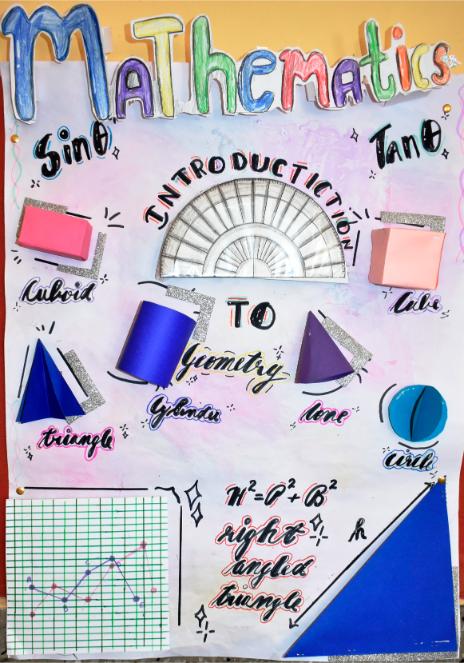 MaThematics
Sinθ
Tanθ
INTRODUCTICTION
Cuboid
Cube
TO
Geometry
Cylinder
Cone
triangle
circle
H²=P²+B²
right
angled
triangle
h